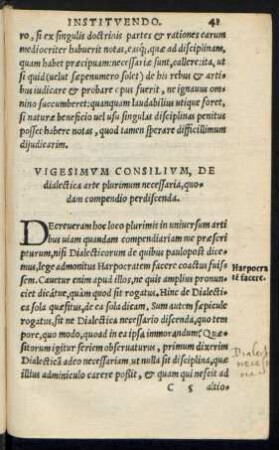 INSTITVENDO. 41
ro, si ex singulis doctrinis partes & rationes earum
mediocriter habuerit notas, easq́;, quæ ad disciplinam,
quam habet præcipuam: necessariæ sunt, callere: ita, ut
si quid (uelut sæpenumero solet) de his rebus & arti-
bus iudicare & probare opus fuerit, ne ignauus omni-
nino succumberet: quanquam laudabilius utique foret,
si naturæ beneficio uel usu singulas disciplinas penitus
posset habere notas, quod tamen sperare difficillimum
dijudicarim.
VIGESIMVM CONSILIVM, DE
dialectica arte plurimum necessaria, quo-
dam compendio perdiscenda.
DEcreueram hoc loco plurimis in uniuersum arti
bus uiam quandam compendiariam me præscri
pturum, nisi Dialecticorum de quibus paulopost dice-
mus, lege admonitus Harpocratem facere coactus fuis-
Harpocra
sem. Cauetur enim apud illos, ne quis amplius pronun-
tẽ facere.
ciet dicátue, quàm quod sit rogatus. Hinc de Dialecti-
ca sola quæsitus, de ea sola dicam, Sum autem sæpicule
rogatus, sit ne Dialectica necessario discenda, quo tem
pore, quo modo, quoad in ea ipsa immorandum? Quæ-
sitorum igitur seriem obseruaturus, primum dixerim
Dialecticā adeo necessariam, ut nulla sit disciplina, quæ
illius adminiculo carere possit, & quam qui nesciat ad
C 5 altio-